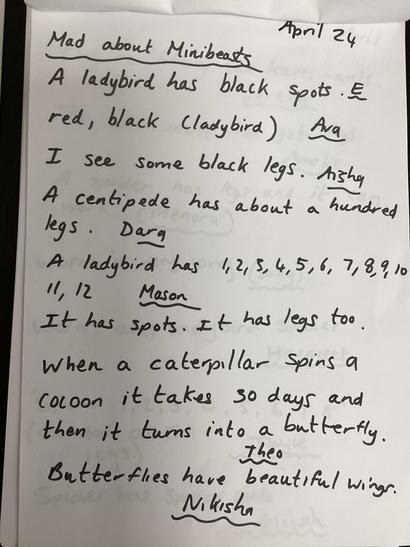 April 24
Mad about Minibeasts
A ladybird has black spots. E
red, black (ladybird) Ava
I see some black legs. Aisha
A centipede has about a hundred
legs. Dara
A ladybird has 1,2,3,4,5,6,7,8,9,10
11, 12 Mason
It has spots. It has legs too.
When a caterpillar spins a
cocoon it takes 30 days and
then it turns into a butterfly.
Theo
Butterflies have beautiful wings.
Nikisha